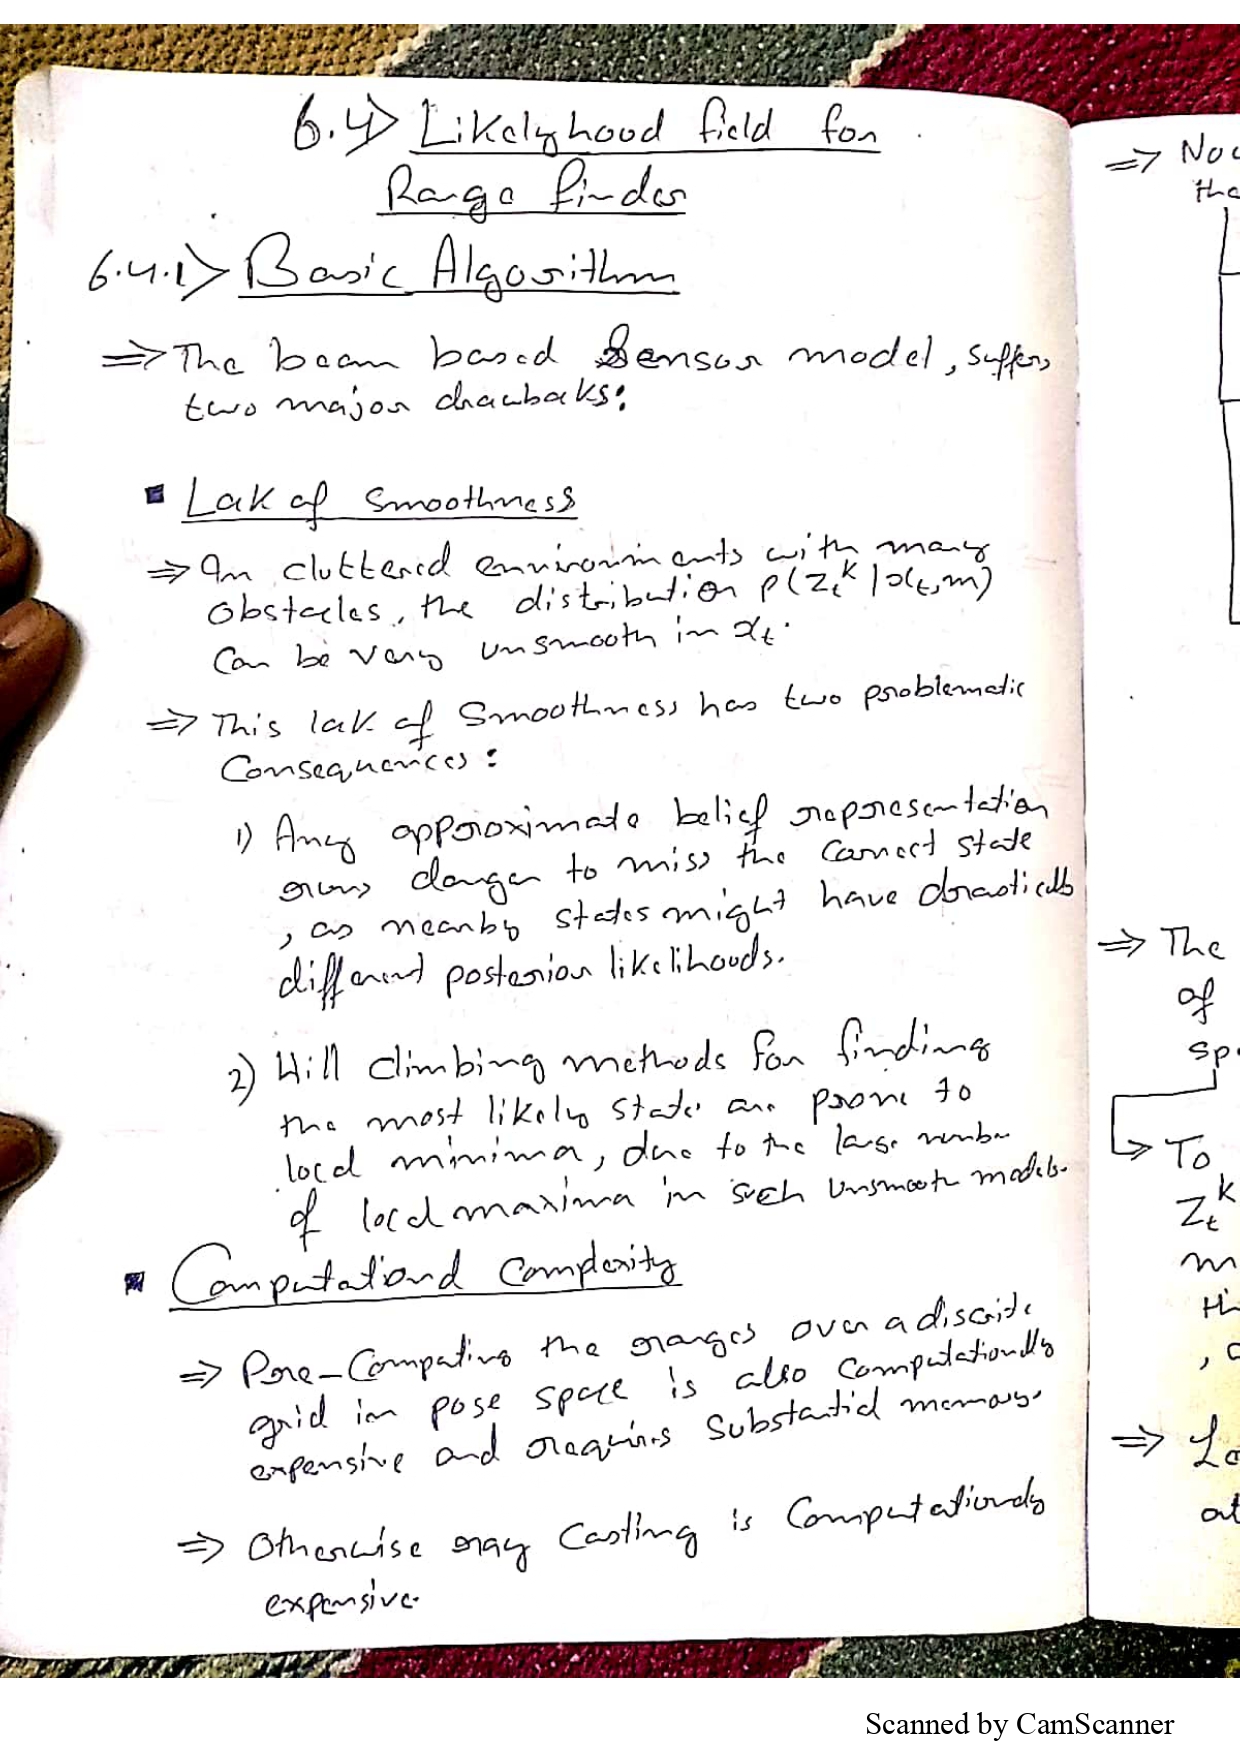 6.4> Likelyhood field for
Range finder
6.4.1> Basic Algorithm
⇒ The beam based Sensor model, suffers
two major drawbaks:
▪ Lak of smoothness
⇒ In cluttered environments with many
obstacles, the distribution p(z_t^k | x_t, m)
can be very unsmooth in x_t.
⇒ This lak of Smoothness has two problematic
Consequences:
1) Any approximate belief representation
runs danger to miss the correct state
, as nearby states might have drastically
different posterior likelihoods.
2) Hill climbing methods for finding
the most likely state are prone to
local minima, due to the large number
of local maxima in such unsmooth models.
▪ Computational complexity
⇒ Pre-Computing the ranges over a discrite
grid in pose space is also computationally
expensive and requires substantial memory.
⇒ Otherwise ray casting is computationally
expensive.
⇒ Now
the
⇒ The
of
To
z_t^k
at
Scanned by CamScanner